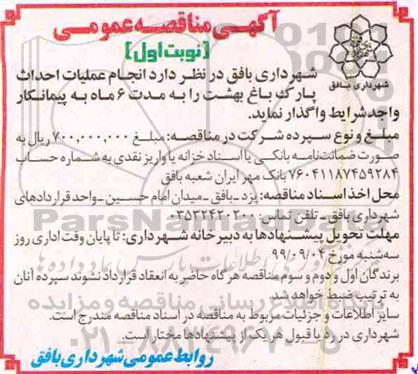 آگهی مناقصه عمومی
(نوبت اول)
شهرداری بافق
شهرداری بافق در نظر دارد انجام عملیات احداث
پارک باغ بهشت را به مدت ۶ ماه به پیمانکار
واجد شرایط واگذار نماید.
مبلغ و نوع سپرده شرکت در مناقصه: مبلغ ۷۰۰,۰۰۰,۰۰۰ ریال به
صورت ضمانت‌نامه بانکی یا اسناد خزانه یا واریز نقدی به شماره حساب
۷۶۰۴۱۱۸۷۴۵۹۲۸۴ بانک مهر ایران شعبه بافق
محل اخذ اسناد مناقصه: یزد-بافق-میدان امام حسین-واحد قراردادهای
شهرداری بافق - تلفن تماس: ۰۳۵۳۲۴۲۰۲۰۰
مهلت تحویل پیشنهادها به دبیرخانه شهرداری: تا پایان وقت اداری روز
سه‌شنبه مورخ ۹۹/۰۹/۰۴
برندگان اول و دوم و سوم مناقصه هر گاه حاضر به انعقاد قرارداد نشوند سپرده آنان
به ترتیب ضبط خواهد شد.
سایر اطلاعات و جزئیات مربوط به مناقصه در اسناد مناقصه مندرج است.
شهرداری در رد یا قبول هر یک از پیشنهادها مختار است.
روابط عمومی شهرداری بافق